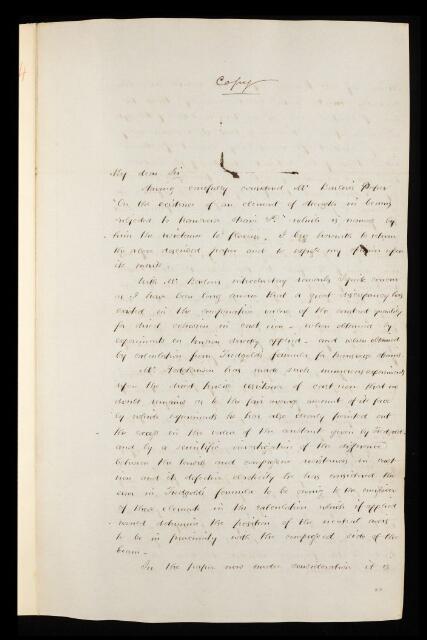 Copy
My dear Sir
Having carefully considered Mr Barlow's Paper
"On the existence of an element of strength in beams
subjected to transverse strain &c" which is named by
him the resistance to flexure. I beg herewith to return
the above described paper and to express my opinion upon
its merits.
With Mr Barlow's introductory remarks I quite concur
as I have been long aware that a great discrepancy has
existed in the comparative values of the constant
for direct cohesion in cast iron - when obtained by
experiments on tension directly applied - and when obtained
by calculation from Tredgold's formula for transverse strains.
Mr Hodgkinson has made such numerous experiments
upon the direct tensile resistance of cast iron that no
doubt remains as to the fair average amount of its force
by which experiments he has also clearly pointed out
the excess in the value of the constant given by Tredgold
and by a scientific investigation of the difference
between the tensile and compressive resistances in cast
iron and its defective elasticity he has considered the
error in Tredgold's formula to be owing to the
of these elements in the calculation which if applied
would determine the position of the neutral axis
to be in proximity with the compressed side of the
beam -
In the paper now under consideration it is